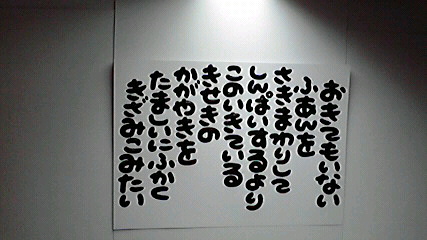 おきてもいない
ふあんを
さきまわりして
しんぱいするより
このいきている
きせきの
かがやきを
たましいにふかく
きざみこみたい